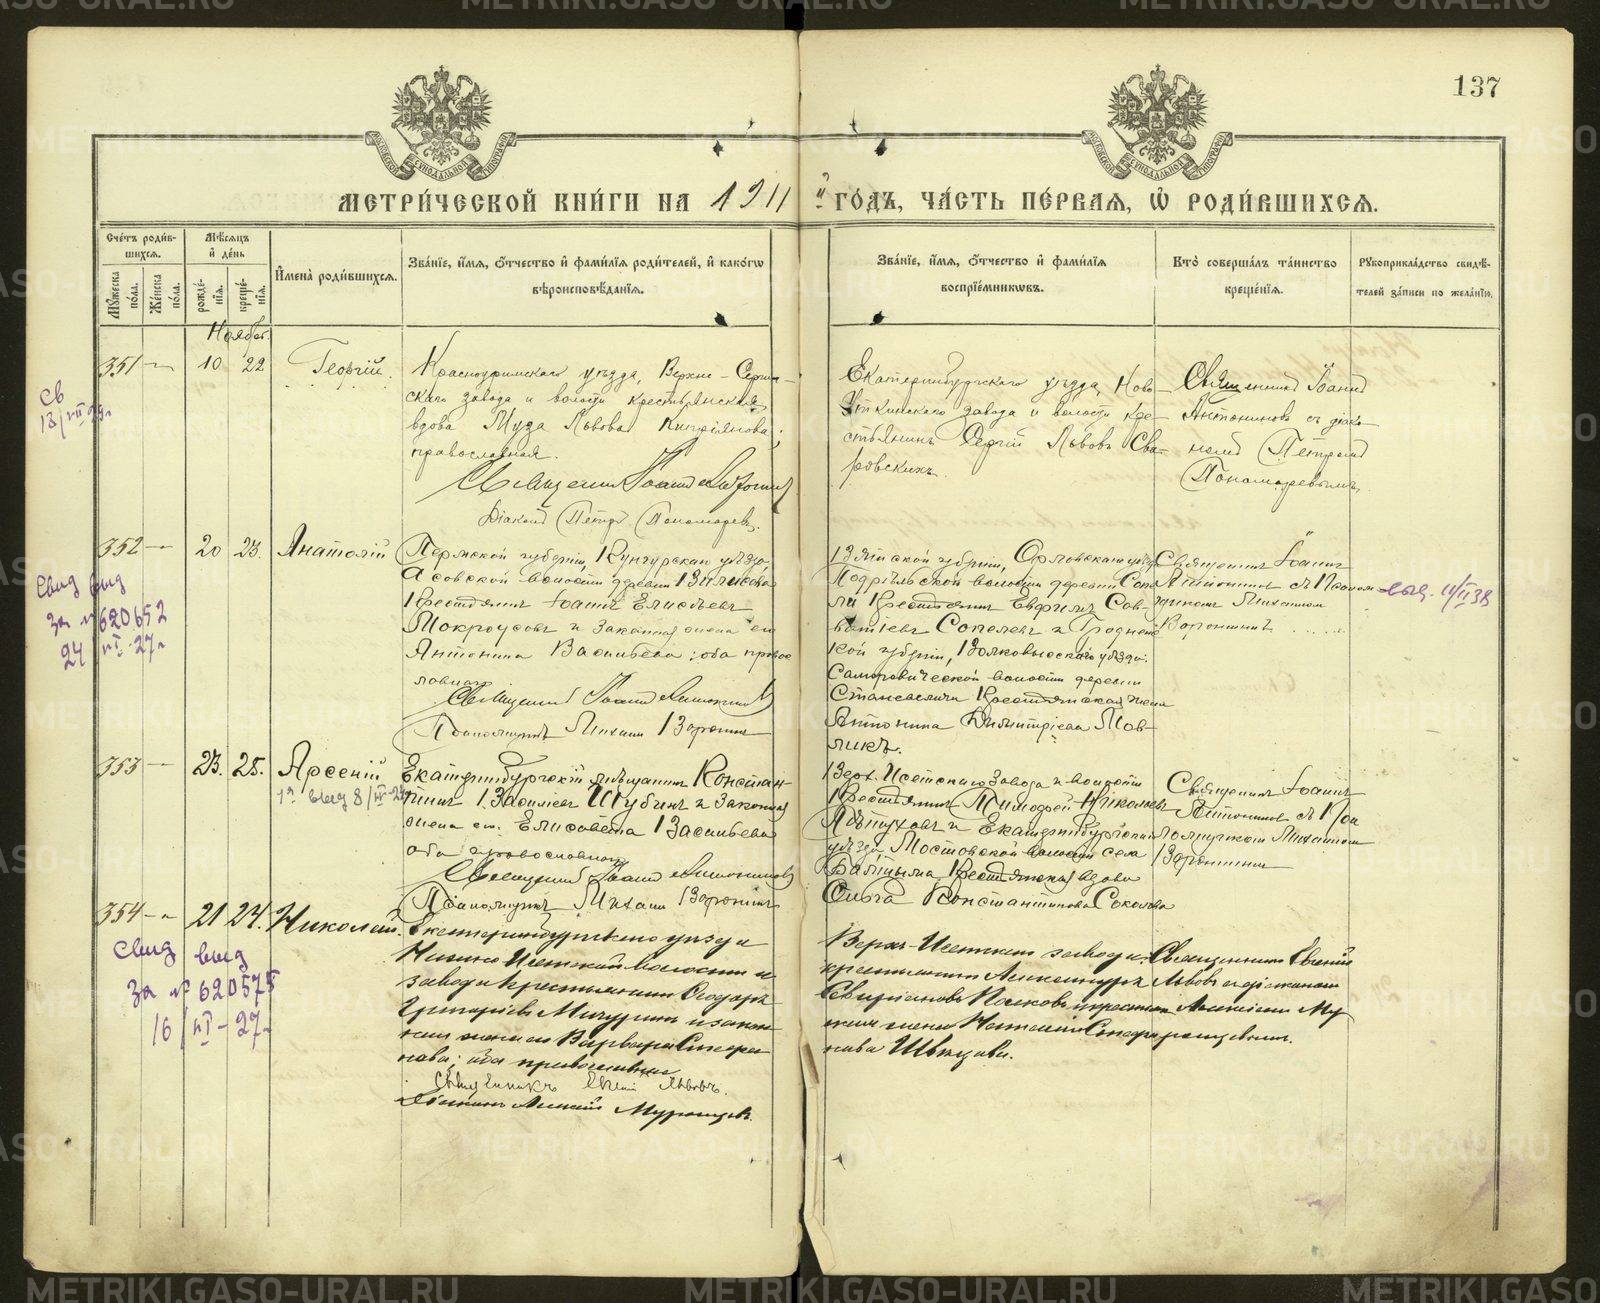 137
МЕТРИ́ЧЕСКОЙ КНИ́ГИ НА 1911 й ГО́ДЪ, ЧА́СТЬ ПЕ́РВАЯ, Ѡ РОДИ́ВШИХСЯ.
Сче́тъ роди́в-
шихся.
Мꙋжеска по́ла.
Же́нска по́ла.
Мѣ́сяцъ
и де́нь
рожде́-
нїя.
креще́-
нїя.
Имена̀ роди́вшихся.
Зва́нїе, и́мя, ѻ́тчество и фами́лїя роди́телей, и како́гѡ
вѣроисповѣ́данїя.
Зва́нїе, и́мя, ѻ́тчество и фами́лїя
воспрїе́мникѡвъ.
Кто̀ соверша́лъ та́инство
креще́нїя.
Рꙋкоприкла́дство свидѣ́-
телей за́писи по жела́нїю.
Ноябрь
351 — 10 22 Георгій
Красноуфимскаго уѣзда, Верхне-Серги-
скаго завода и волости крестьянская
вдова Муза Львова Кипріянова;
православная.
Священникъ Іоаннъ Антониновъ
Діаконъ Петръ Пономаревъ.
Екатеринбургскаго уѣзда, Ново-
Уткинскаго завода и волости кре-
стьянинъ Сергій Львовъ Сва-
ровскихъ.
Священникъ Іоаннъ
Антониновъ съ діако-
номъ Петромъ
Пономаревымъ.
Св
352 — 20 23. Анатолій
Пермской губерніи, Кунгурскаго уѣзда,
Асовской волости деревни
Крестьянинъ Іоаннъ Елисѣевъ
Мокроусовъ и законная жена его
Антонина Васильева: оба право-
славные
Священникъ Іоаннъ Антониновъ
Псаломщикъ Михаилъ Воронинъ
Вятской губерніи, Орловскаго уѣзда
волости деревни Сопе-
ли Крестьянинъ Евфимъ Сав-
ватіевъ Сопелевъ и Гроднен-
ской губерніи, Волковысскаго уѣзда
волости деревни
Крестьянская жена
Антонина Димитріева Мов-
ликъ.
Священникъ Іоаннъ
Антониновъ съ Псалом-
щикомъ Михаиломъ
Воронинымъ
выд. 11/II 38
Свид выд
за № 620652
24/VI-27г
353 — 23. 25. Арсеній
1е выд 8/III-24
Екатеринбургскій мѣщанинъ Констан-
тинъ Васильевъ Шубинъ и законная
жена его Елисавета Васильева
оба православные
Священникъ Іоаннъ Антониновъ
Псаломщикъ Михаилъ Воронинъ
Верх. Исетскаго завода и волости
Крестьянинъ Тимофей Николаевъ
Пѣтуховъ и Екатеринбургскаго
уѣзда, Мостовской волости села
Крестьянская вдова
Ольга Константинова Соколова
Священникъ Іоаннъ
Антониновъ съ Пса-
ломщикомъ Михаиломъ
Воронинымъ
354 — 21 24. Николай.
Екатеринбургскаго уѣзда
Нижне Исетской волости и
завода крестьянинъ Ѳеодоръ
Григоріевъ Мичуринъ и закон-
ная жена его Варвара Стефа-
нова; оба православные
Священникъ Евгеній Львовъ.
Діаконъ Алексій Мурашовъ.
Верхъ-Исетскаго завода
крестьянинъ Александръ
жена Наталія Стефа-
нова Швецова.
Священникъ Евгеній
Львовъ съ діакономъ
Алексіемъ Му-
Свид выд
за № 620575
16/VI-27г
METRIKI.GASO-URAL.RU